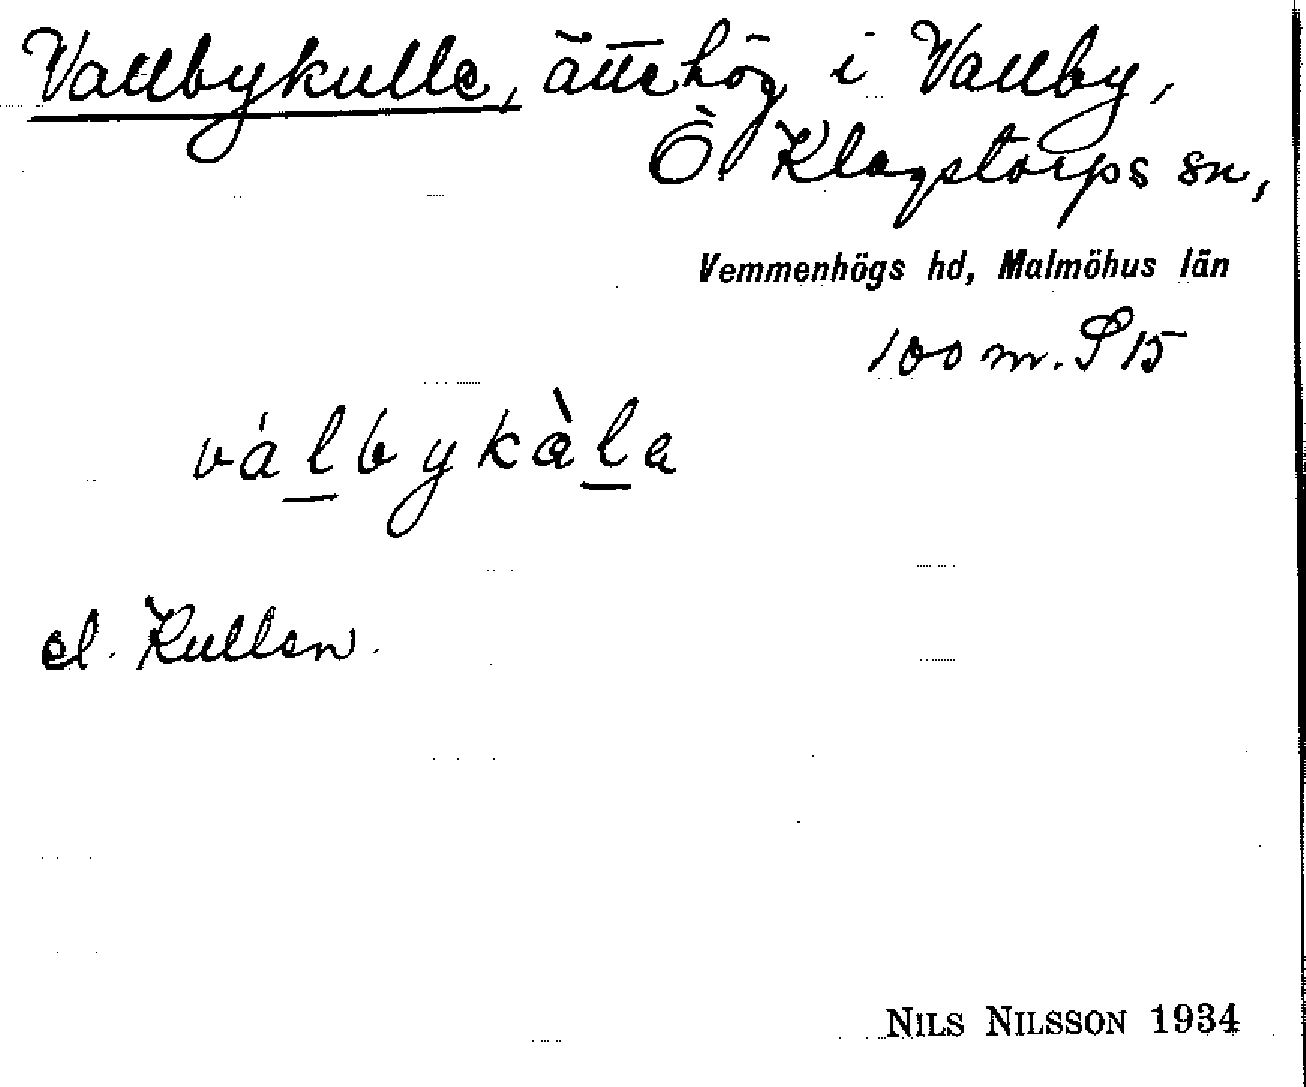 Vallbykulle, ättehög i Vallby,
Ö. Klagstorps sn,
Vemmenhögs hd, Malmöhus län
100 m. S 15
válbykàla
el. Kullen.
NILS NILSSON 1934